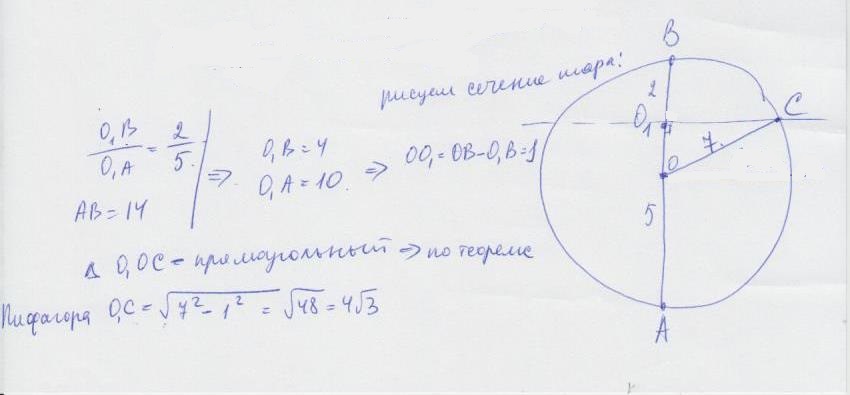 рисуем сечение шара:
O₁B/O₁A = 2/5
AB = 14
=> O₁B = 4
O₁A = 10.
=> OO₁ = OB - O₁B = 1
Δ O₁OC - прямоугольный => по теореме
Пифагора O₁C = √(7² - 1²) = √48 = 4√3
B
2
O₁
C
7
O
5
A